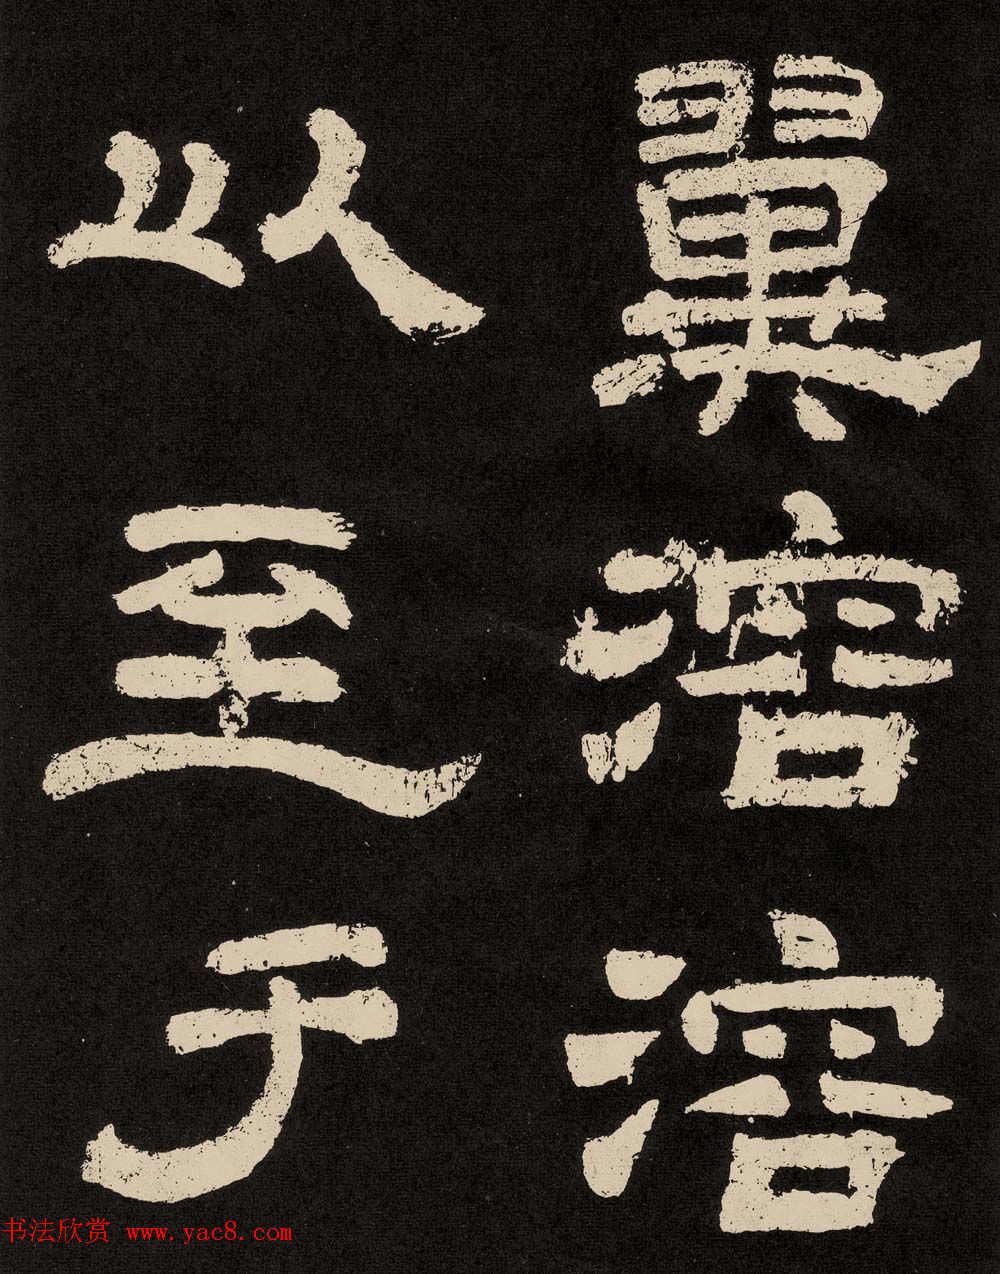 翼溶溶
以至于
书法欣赏 www.yac8.com